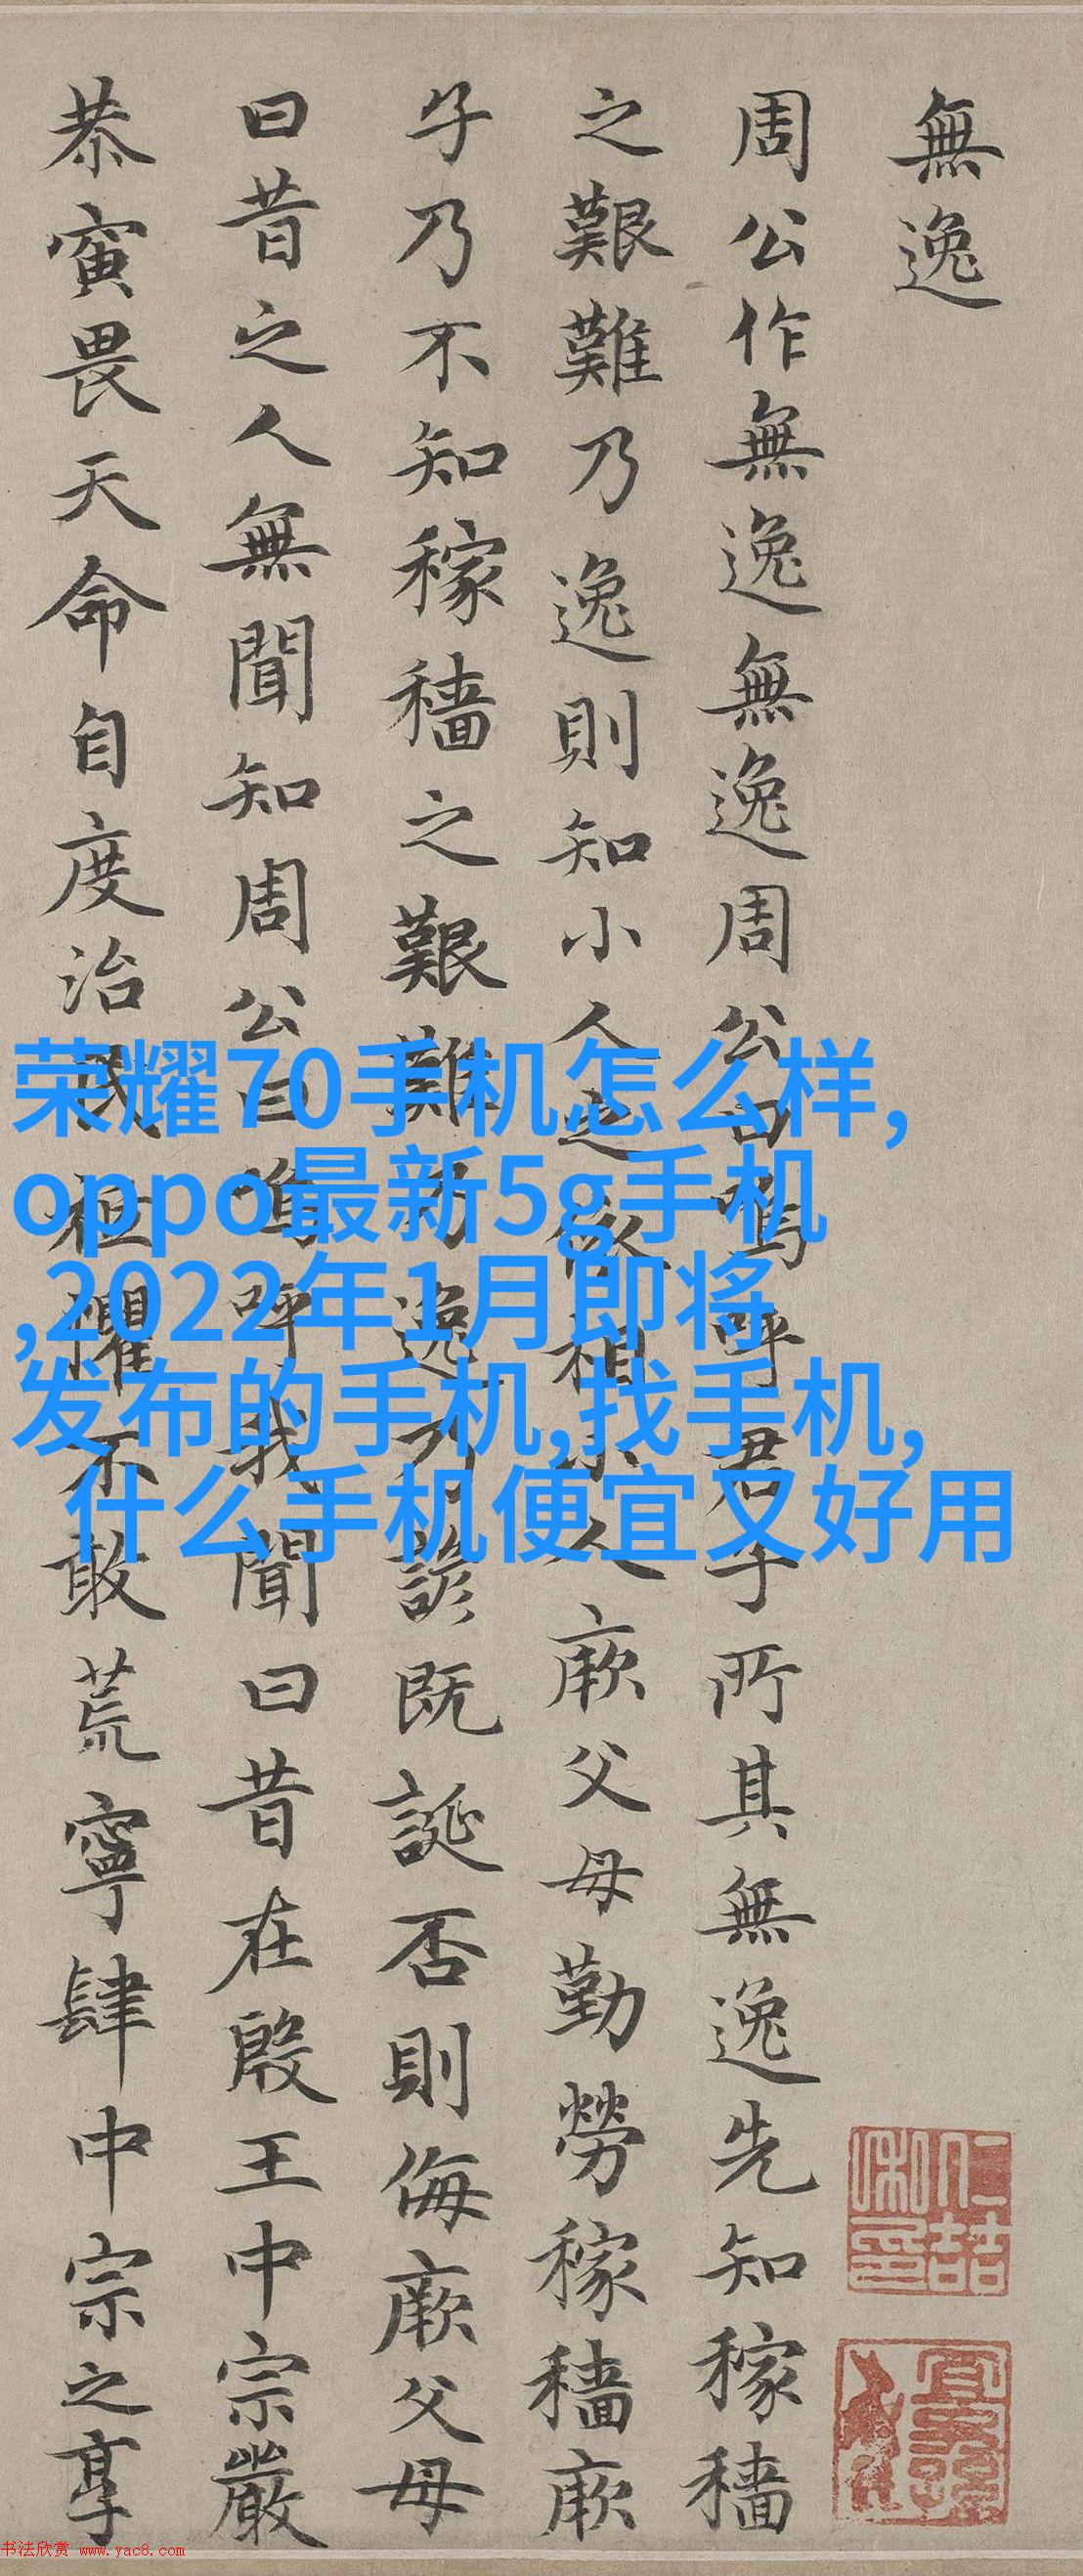 無逸
周公作無逸無逸周公曰嗚呼君子所其無逸先知稼穡
之艱難乃逸則知小人之依相小人厥父母勤勞稼穡厥
子乃不知稼穡之艱難乃逸乃諺既誕否則侮厥父母
曰昔之人無聞知周公曰嗚呼我聞曰昔在殷王中宗嚴
恭寅畏天命自度治民祗懼不敢荒寧肆中宗之享
荣耀70手机怎么样,
oppo最新5g手机
,2022年1月即将
发布的手机,找手机,
什么手机便宜又好用
书法欣赏 www.yac8.com